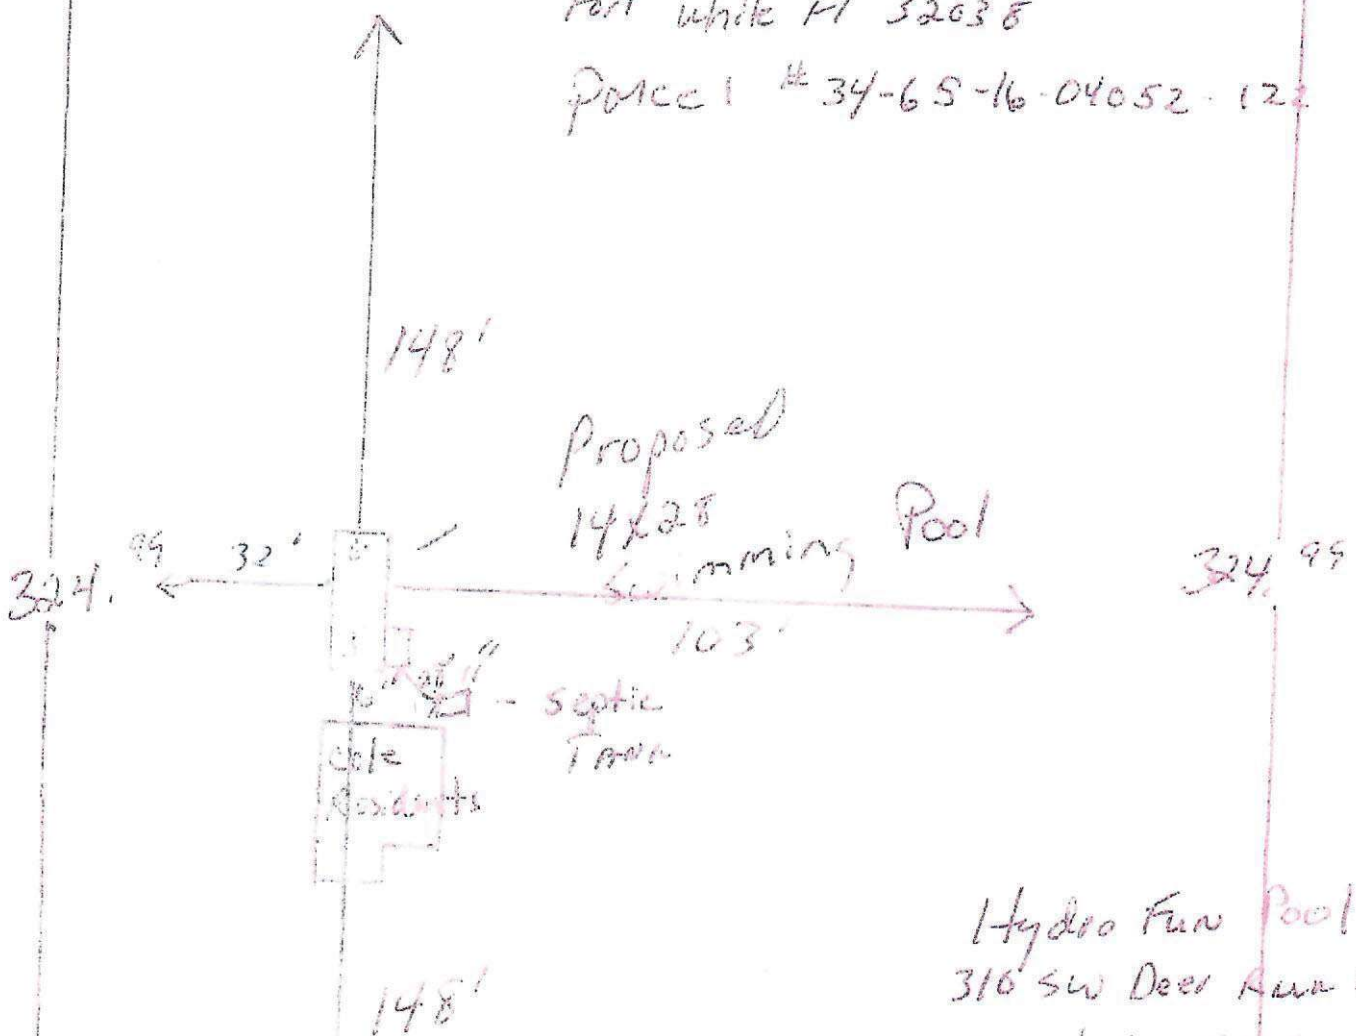 Fort White Fl 32038
Parcel # 34-6S-16-04052-122
148'
Proposed
14x28
Swimming Pool
324.99
32'
103'
324.99
- Septic
Tank
Cole
Residents
Hydro Fun Pool
310 SW Deer Run
148'